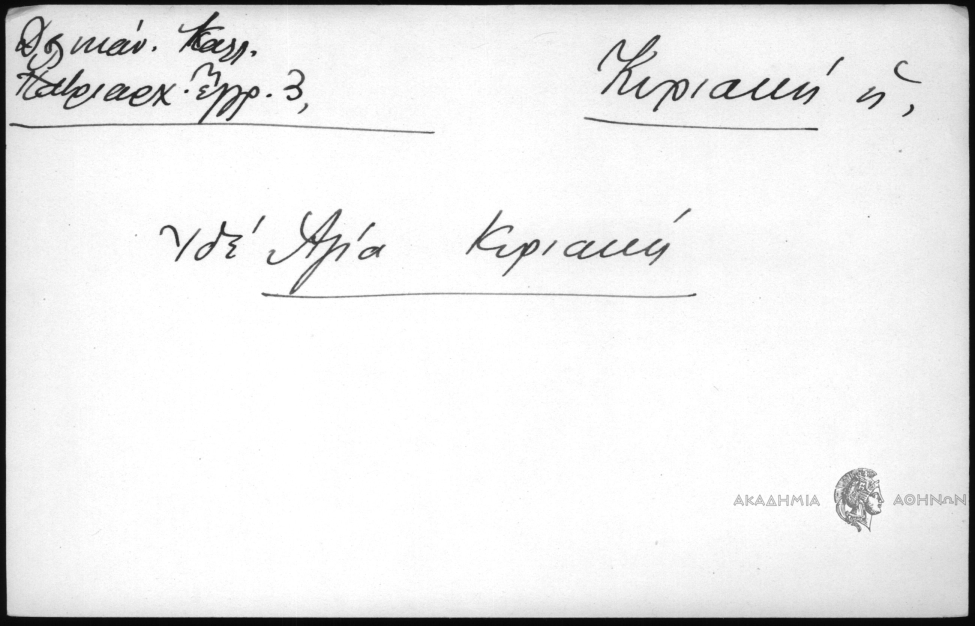 Δελικάν. Καλλ.
Πατριαρχ. Ἔγγρ. 3,
Κυριακή ἡ,
ἰδέ Ἁγία Κυριακή
ΑΚΑΔΗΜΙΑ ΑΘΗΝΩΝ